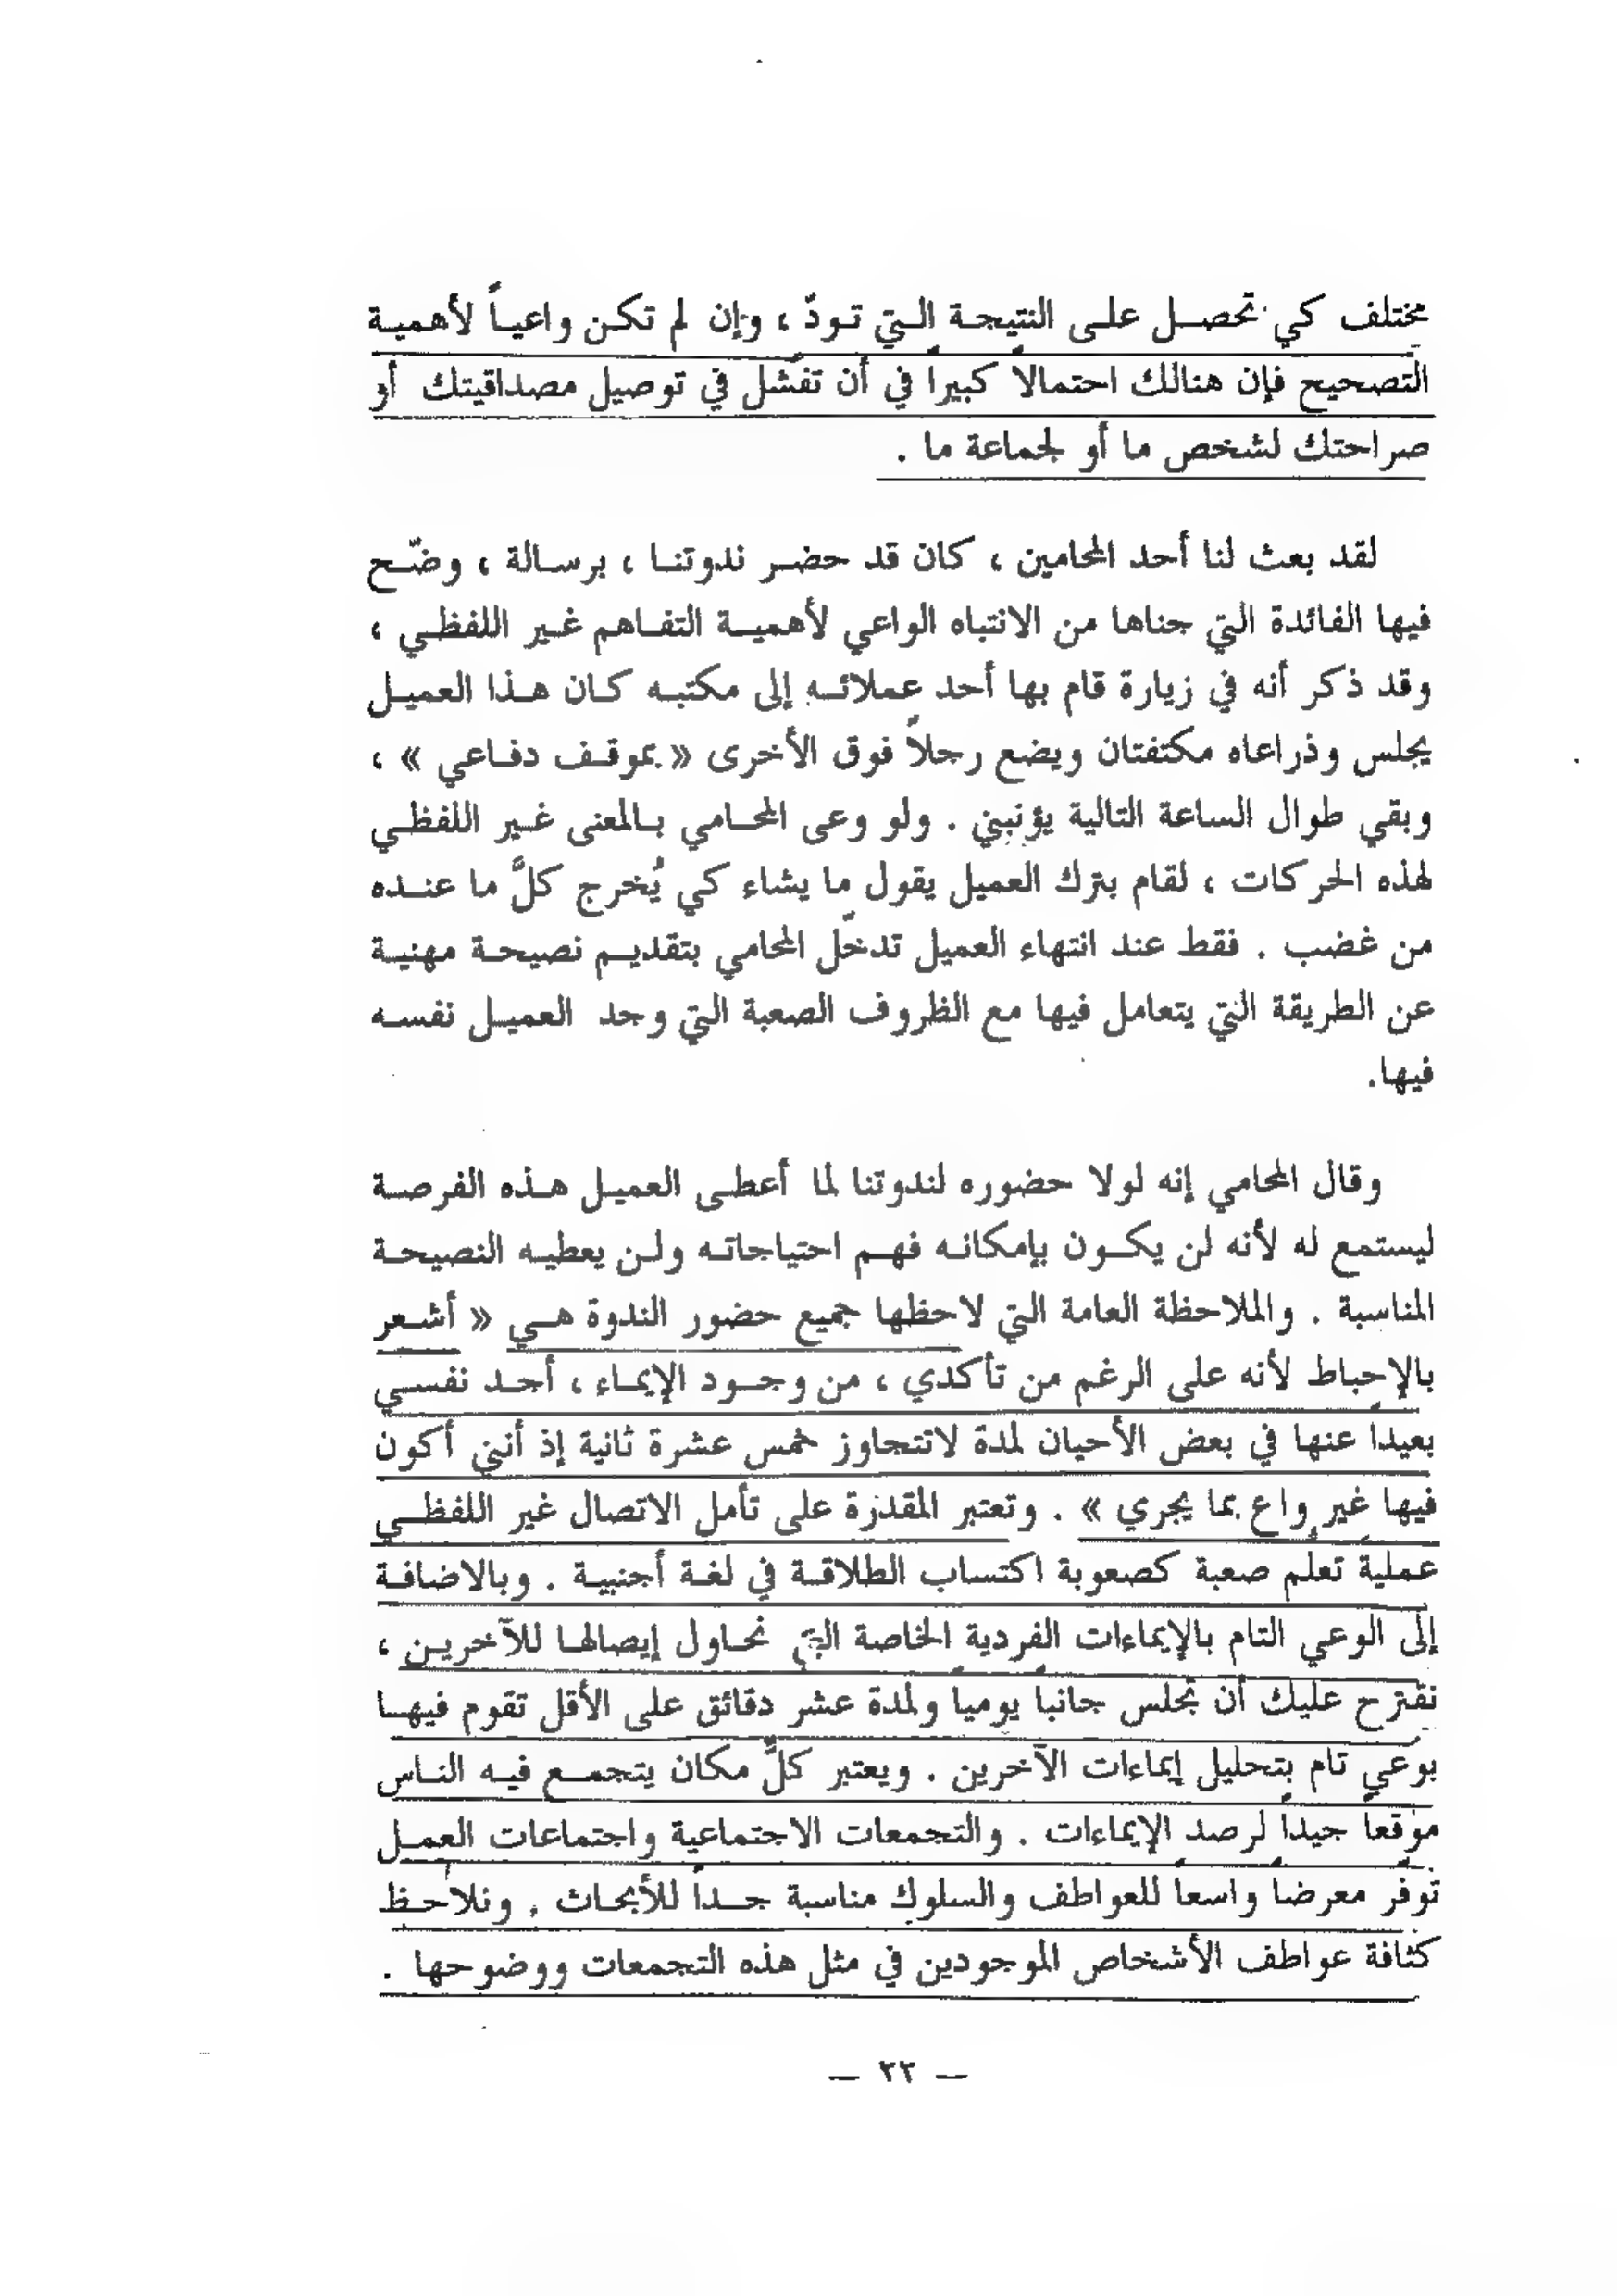 مختلف كي تحصل على النتيجة التي تودّ ، وإن لم تكن واعياً لأهمية
التصحيح فإن هنالك احتمالاً كبيراً في أن تفشل في توصيل مصداقيتك أو
صراحتك لشخص ما أو لجماعة ما .
لقد بعث لنا أحد المحامين ، كان قد حضر ندوتنا ، برسالة ، وضّح
فيها الفائدة التي جناها من الانتباه الواعي لأهمية التفاهم غير اللفظي ،
وقد ذكر أنه في زيارة قام بها أحد عملائه إلى مكتبه كان هذا العميل
يجلس وذراعاه مكتفتان ويضع رجلاً فوق الأخرى « بموقف دفاعي » ،
وبقي طوال الساعة التالية يؤنبني . ولو وعى المحامي بالمعنى غير اللفظي
لهذه الحركات ، لقام بترك العميل يقول ما يشاء كي يُخرج كلَّ ما عنده
من غضب . فقط عند انتهاء العميل تدخّل المحامي بتقديم نصيحة مهنية
عن الطريقة التي يتعامل فيها مع الظروف الصعبة التي وجد العميل نفسه
فيها.
وقال المحامي إنه لولا حضوره لندوتنا لما أعطى العميل هذه الفرصة
ليستمع له لأنه لن يكون بإمكانه فهم احتياجاته ولن يعطيه النصيحة
المناسبة . والملاحظة العامة التي لاحظها جميع حضور الندوة هي « أشعر
بالإحباط لأنه على الرغم من تأكدي ، من وجود الإيماء ، أجد نفسي
بعيداً عنها في بعض الأحيان لمدة لاتتجاوز خمس عشرة ثانية إذ أنني أكون
فيها غير واعٍ بما يجري » . وتعتبر المقدرة على تأمل الاتصال غير اللفظي
عملية تعلم صعبة كصعوبة اكتساب الطلاقة في لغة أجنبية . وبالاضافة
إلى الوعي التام بالإيماءات الفردية الخاصة التي نحاول إيصالها للآخرين ،
نقترح عليك أن تجلس جانباً يومياً ولمدة عشر دقائق على الأقل تقوم فيها
بوعي تام بتحليل إيماءات الآخرين . ويعتبر كلُّ مكان يتجمع فيه الناس
موقعاً جيداً لرصد الإيماءات . والتجمعات الاجتماعية واجتماعات العمل
توفر معرضاً واسعاً للعواطف والسلوك مناسبة جداً للأبحاث . ونلاحظ
كثافة عواطف الأشخاص الموجودين في مثل هذه التجمعات ووضوحها .
— ٢٢ —